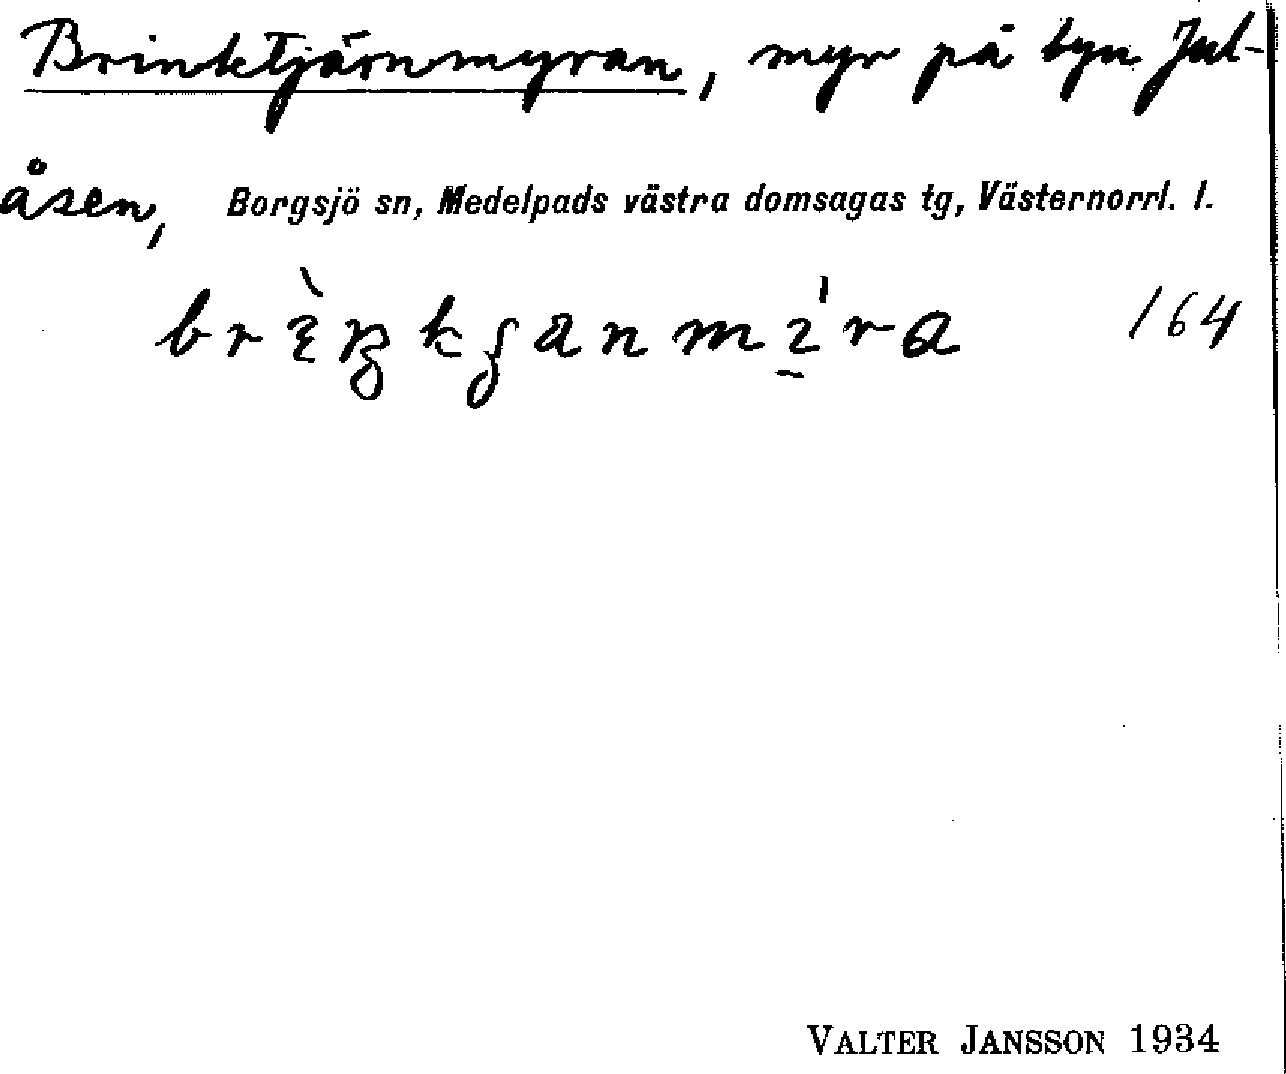 Brinktjärnmyran, myr på byn Jul-
åsen, Borgsjö sn, Medelpads västra domsagas tg, Västernorrl. l.
164
VALTER JANSSON 1934